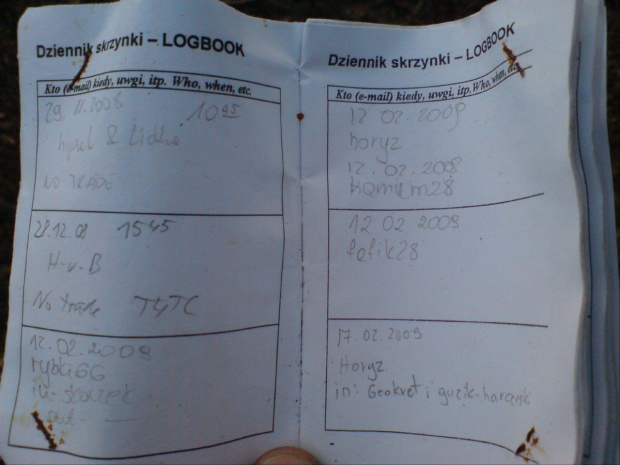 Dziennik skrzynki – LOGBOOK
Kto (e-mail) kiedy, uwgi, itp. Who, when, etc.
29.11.2008 10 45
& Lidka
NO TRADE
28.12.08 1545
H-v-B
No trade T4TC
12.02.2009
rybka66
in:
out - —
Dziennik skrzynki – LOGBOOK
Kto (e-mail) kiedy, uwgi, itp. Who, when, etc.
12 02 2009
horyz
12.02.2009
Kamilm28
12 02 2009
fefik28
17.02.2009
Horyz
in: Geokret i guzik-harcersk